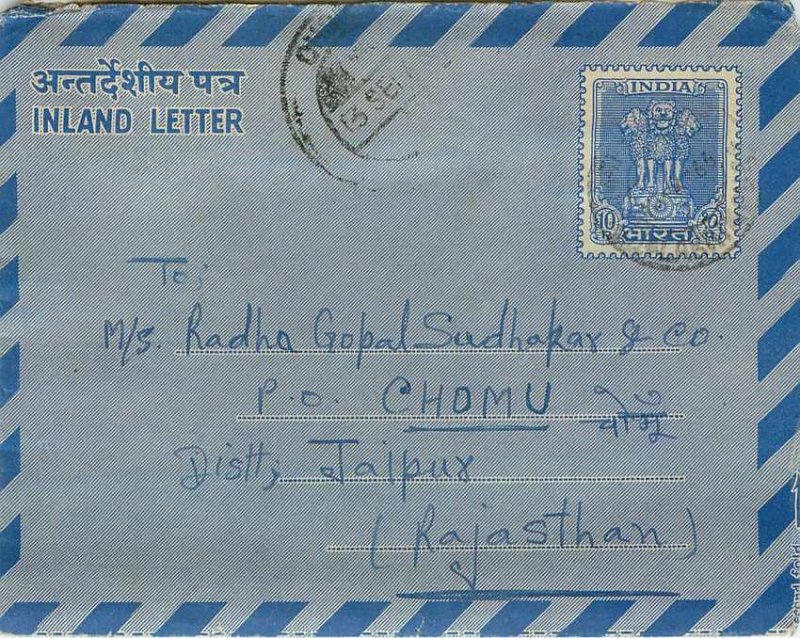 अन्तर्देशीय पत्र
INLAND LETTER
INDIA
10 10
भारत
13 SEP
To;
M/s. Radha Gopal Sudhakar & Co.
P.O. CHOMU चोमूँ
Distt, Jaipur
(Rajasthan)